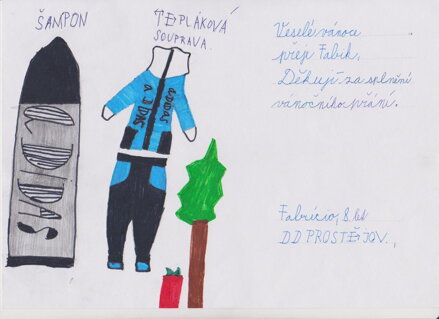 ŠAMPON
TEPLÁKOVÁ
SOUPRAVA.
ADIDAS
ADIDAS
ADIDAS
Veselé vánoce
přeje Fabik.
Děkuji za splnění
vánočního přání.
Fabricio, 8. let
DD PROSTĚJOV.